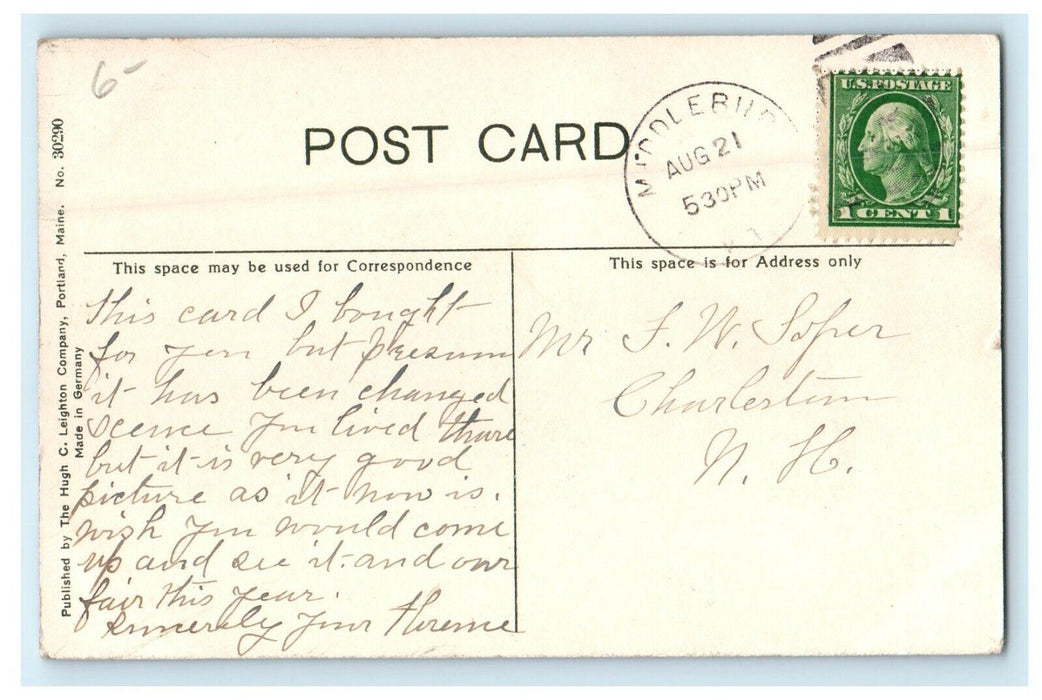 6-
POST CARD
MIDDLEBUR
AUG 21
530PM
U.S. POSTAGE
1 CENT 1
This space may be used for Correspondence
This space is for Address only
Published by The Hugh C. Leighton Company, Portland, Maine. No. 30290
Made in Germany
this card I bought
for you but presum
it has been changed
scence you lived thare
but it is very good
picture as it now is.
wish you would come
up and see it and our
fair this year.
Sincerely your Florence
Mr F. W. Soper
Charlestown
N. H.